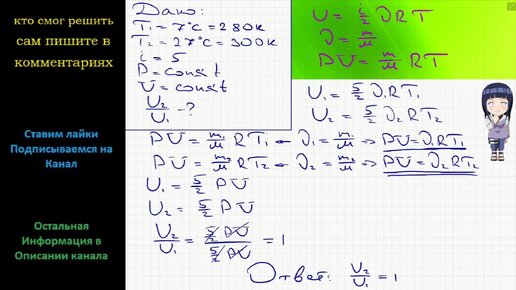 кто смог решить
сам пишите в
комментариях
Ставим лайки
Подписываемся на
Канал
Остальная
Информация в
Описании канала
Дано:
T₁ = 7°C = 280 К
T₂ = 27°C = 300 К
i = 5
P = const
V = const
U₂/U₁ - ?
U = i/2 νRT
ν = m/μ
PV = m/μ RT
U₁ = 5/2 ν₁RT₁
U₂ = 5/2 ν₂RT₂
PV = m₁/μ RT₁ ← ν₁ = m₁/μ => PV = ν₁RT₁
PV = m₂/μ RT₂ ← ν₂ = m₂/μ => PV = ν₂RT₂
U₁ = 5/2 PV
U₂ = 5/2 PV
U₂/U₁ = 5/2 PV / 5/2 PV = 1
Ответ: U₂/U₁ = 1